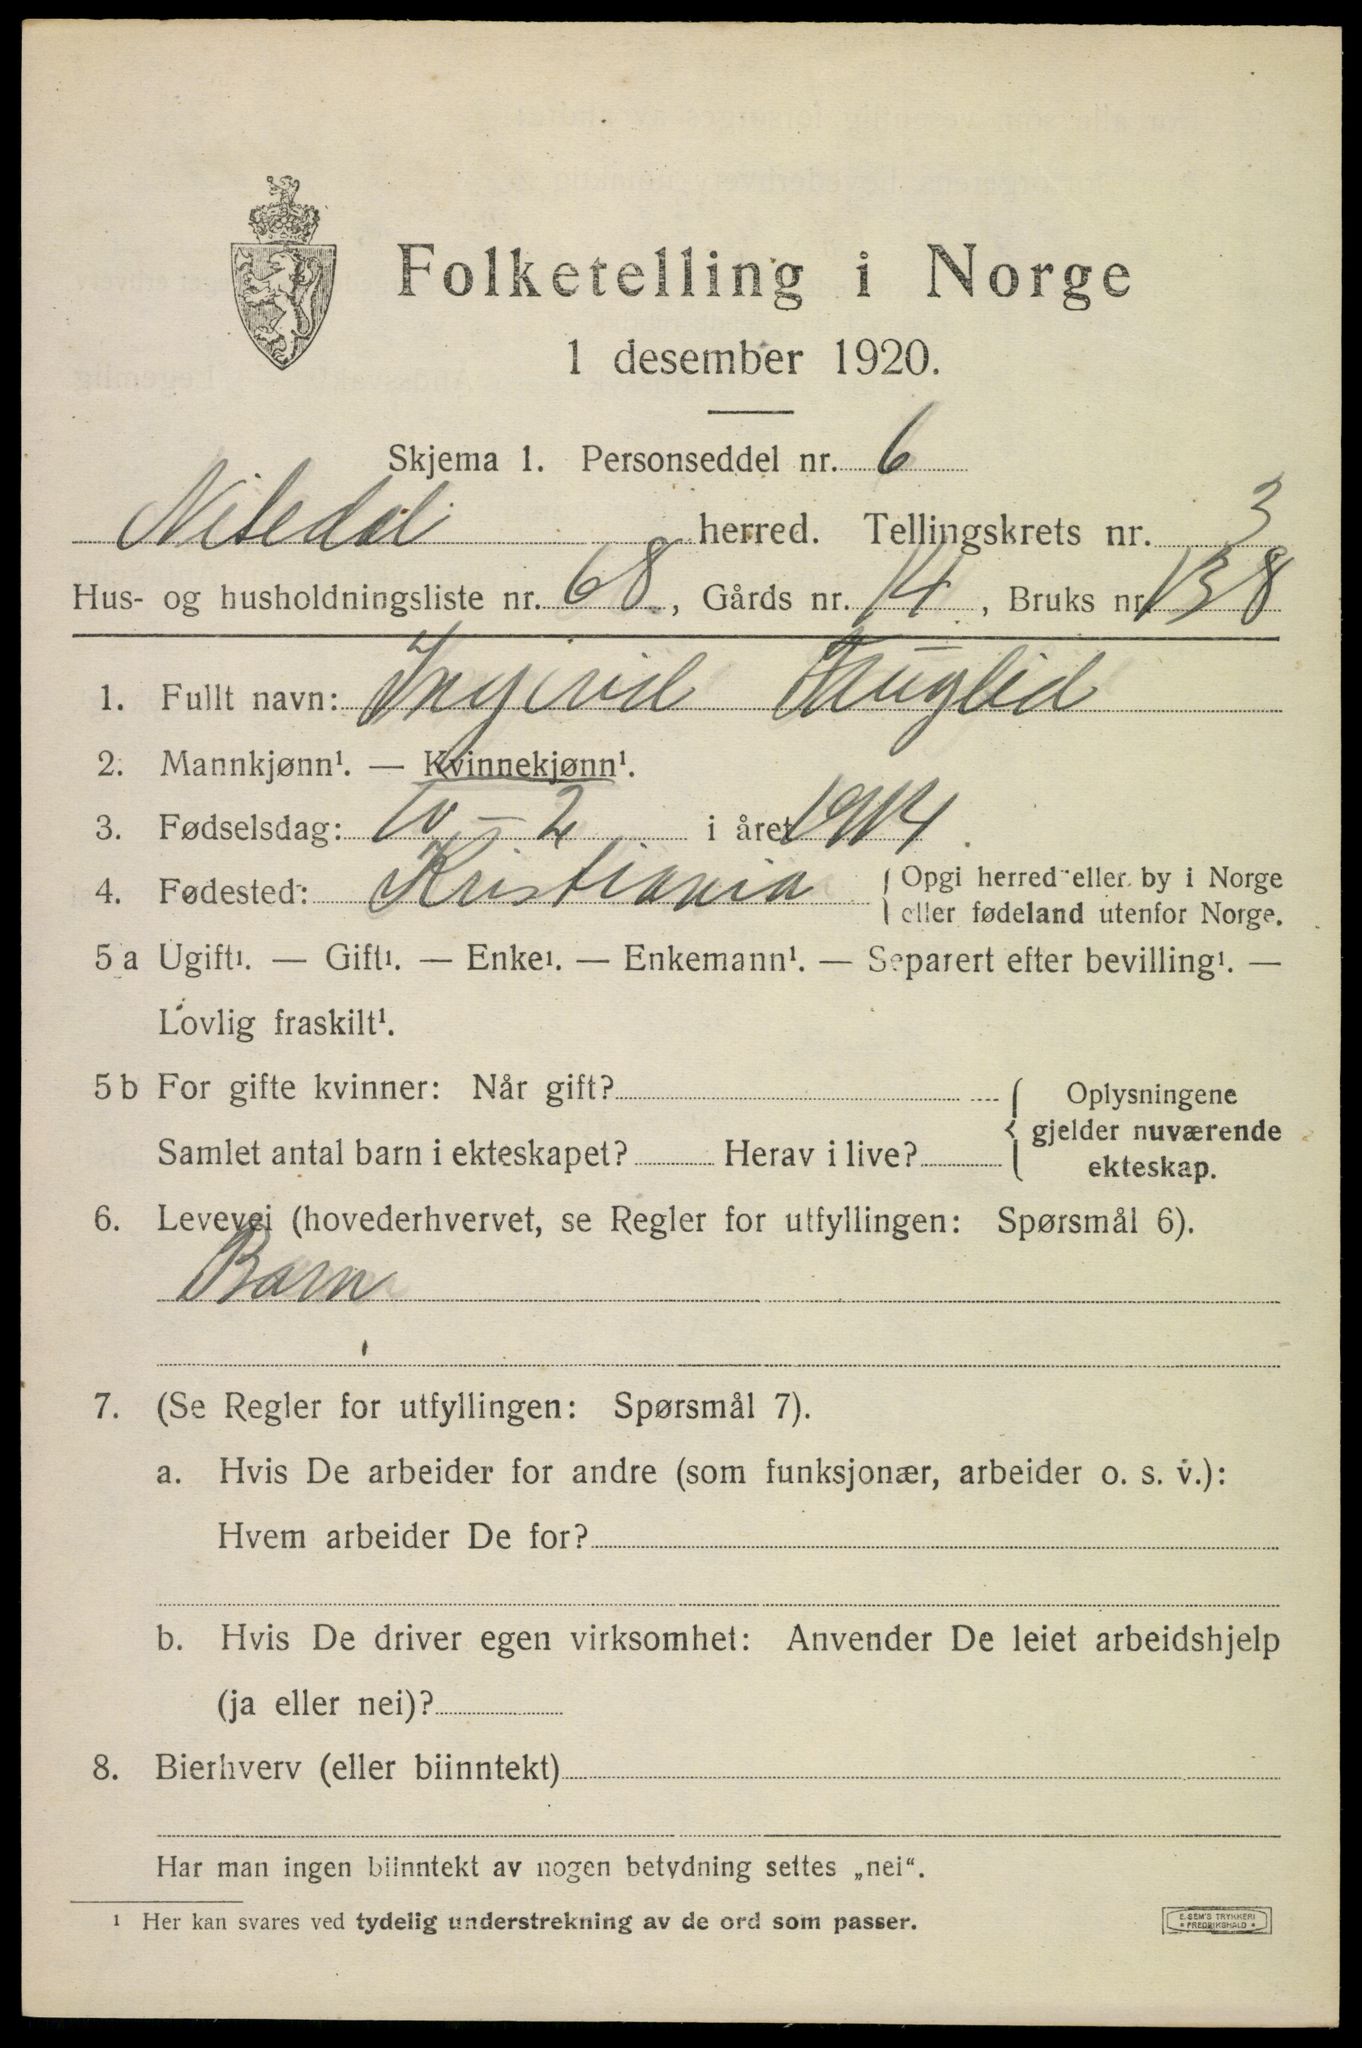 Folketelling i Norge
1 desember 1920.
Skjema 1. Personseddel nr. 6
Nitedal herred. Tellingskrets nr. 3
Hus- og husholdningsliste nr. 68, Gårds nr. 14, Bruks nr. 138
1. Fullt navn: Ingrid
2. Mannkjønn¹. — Kvinnekjønn¹.
3. Fødselsdag: 10 – 2 i året 1914.
4. Fødested: Kristiania { Opgi herred eller by i Norge
eller fødeland utenfor Norge.
5 a Ugift¹. — Gift¹. — Enke¹. — Enkemann¹. — Separert efter bevilling¹. —
Lovlig fraskilt¹.
5 b For gifte kvinner: Når gift? { Oplysningene
gjelder nuværende
Samlet antal barn i ekteskapet? Herav i live? ekteskap.
6. Levevei (hovederhvervet, se Regler for utfyllingen: Spørsmål 6).
Barn
7. (Se Regler for utfyllingen: Spørsmål 7).
a. Hvis De arbeider for andre (som funksjonær, arbeider o. s. v.):
Hvem arbeider De for?
b. Hvis De driver egen virksomhet: Anvender De leiet arbeidshjelp
(ja eller nei)?
8. Bierhverv (eller biinntekt)
Har man ingen biinntekt av nogen betydning settes „nei“.
¹ Her kan svares ved tydelig understrekning av de ord som passer.
E. SEM'S TRYKKERI
* FREDRIKSHALD *